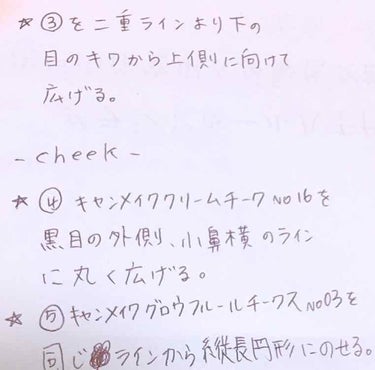 ☆ ③を二重ラインより下の
目のキワから上側に向けて
広げる。
- cheek -
☆ ④ キャンメイククリームチークNo16を
黒目の外側、小鼻横のライン
に丸く広げる。
☆ ⑤ キャンメイクグロウフルールチークスNo03を
同じラインから縦長円形にのせる。